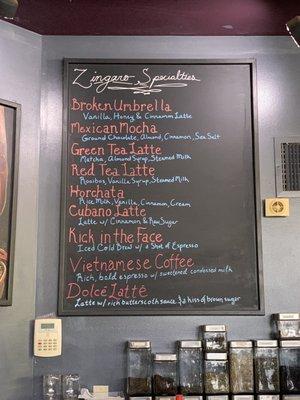 Zingaro Specialties
Broken Umbrella
Vanilla, Honey & Cinnamon Latte
Mexican Mocha
Ground Chocolate, Almond, Cinnamon, Sea Salt
Green Tea Latte
Matcha, Almond Syrup, Steamed Milk
Red Tea Latte
Rooibos, Vanilla Syrup, Steamed Milk
Horchata
Rice Milk, Vanilla, Cinnamon, Cream
Cubano Latte
Latte w/ Cinnamon & Raw Sugar
Kick in the Face
Iced Cold Brew w/ a Shot of Espresso
Vietnamese Coffee
Rich, bold espresso w/ sweetened condensed milk
Dolcé Latté
Latte w/ rich butterscotch sauce & a kiss of brown sugar